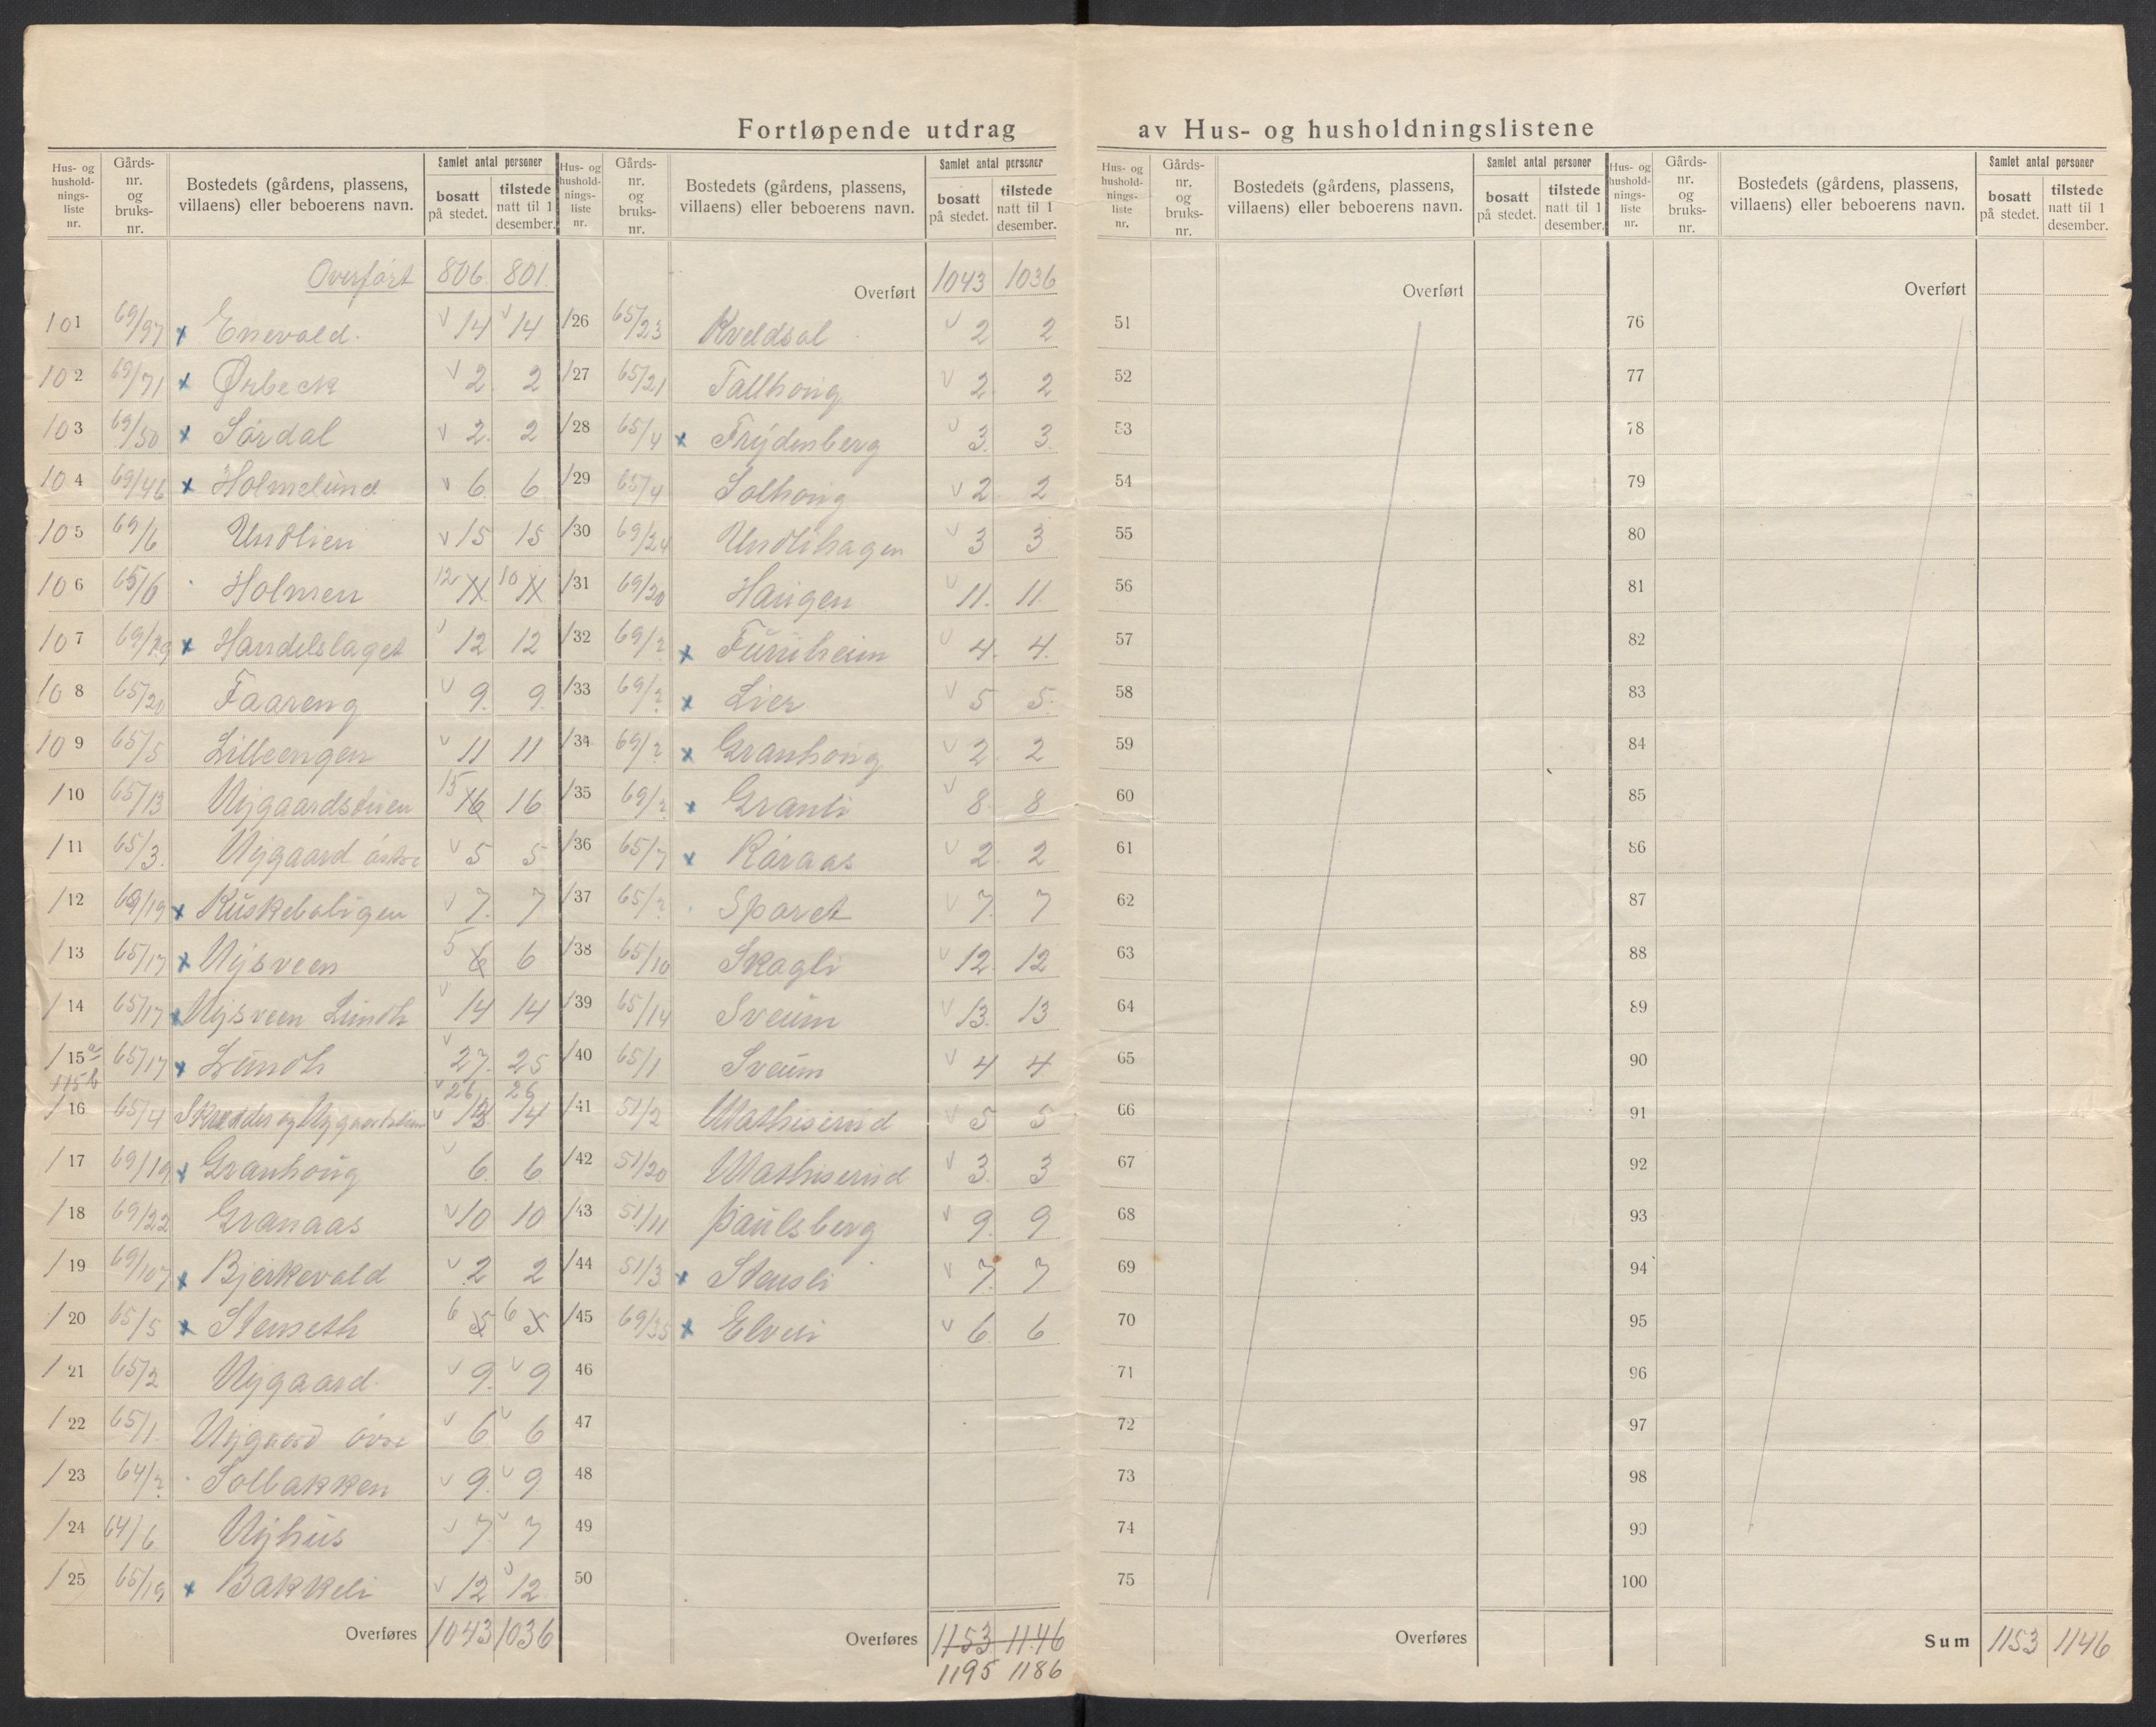 Fortløpende utdrag av Hus- og husholdningslistene
Hus- og husholdnings-liste nr. | Gårds-nr. og bruks-nr. | Bostedets (gårdens, plassens, villaens) eller beboerens navn. | Samlet antal personer | bosatt på stedet. | tilstede natt til 1 desember.
Overført 806 801
101 69/97 x Enevald. v 14 v 14
102 69/71 x Ørbeck v 2. 2
103 69/50 x Sørdal v 2. 2
104 69/46 x Holmelund v 6 6
105 69/6 Undlien v 15 15
106 65/6 Holmen 12 11 10 11
107 69/29 x Handelslaget v 12 12
108 65/20 Faareng v 9. 9.
109 65/5 Lilleengen v 11 11
110 65/13 Nygaardstuen 15 16 16
111 65/3. Nygaard østre v 5 5
112 69/19 x Kuskeboligen v 7. 7
113 65/17 x Nysveen 5 6 6
114 65/17 x Nysveen Lundh v 14 14
115a 65/17 x Lundh v 27. 25
115b v 26 26
116 65/4 Skredder og v 13 14
117 69/19 x Granhoug v 6. 6
118 69/22 Granaas v 10 10
119 69/107 x Bjerkevold v 2 2
120 65/5 x Stenseth 6 5 6 5
121 65/2 Nygaard. v 9. v 9
122 65/1 Nygaard øvre v 6 v 6
123 64/? Solbakken v 9. v 9
124 64/6 Nyhus v 7 v 7
125 65/19 x Bakkeli v 12 v 12.
Overføres 1043 1036
Hus- og husholdnings-liste nr. | Gårds-nr. og bruks-nr. | Bostedets (gårdens, plassens, villaens) eller beboerens navn. | Samlet antal personer | bosatt på stedet. | tilstede natt til 1 desember.
Overført 1043 1036
126 65/23 Kveldsol v 2 2
127 65/21 Tallhoug v 2. 2
128 65/4 x Frydenberg v 3. 3.
129 65/4 Solhoug v 2 2
130 69/24 Undlihagen v 3 3
131 69/20 Haugen v 11. 11.
132 69/? x Furuheim v 4. 4.
133 69/? x Lier v 5 5.
134 69/? x Granhoug v 2. 2
135 69/? x Granli v 8. 8
136 65/7 x Røraas v 2. 2
137 65/? Sparet v 7. 7
138 65/10 Skagli v 12. 12
139 65/14 Sveum v 13. 13
140 65/1 Sveum v 4 4
141 51/2 Mathiserud v 5 5
142 51/20 Mathiserud v 3. 3
143 51/11 Paulsberg v 9. 9
144 51/3 x Stensli v 7. 7.
145 69/35 x v 6. 6
46
47
48
49
50
Overføres 1153 1146
1195 1186
Hus- og husholdnings-liste nr. | Gårds-nr. og bruks-nr. | Bostedets (gårdens, plassens, villaens) eller beboerens navn. | Samlet antal personer | bosatt på stedet. | tilstede natt til 1 desember.
Overført
51
52
53
54
55
56
57
58
59
60
61
62
63
64
65
66
67
68
69
70
71
72
73
74
75
Overføres
Hus- og husholdnings-liste nr. | Gårds-nr. og bruks-nr. | Bostedets (gårdens, plassens, villaens) eller beboerens navn. | Samlet antal personer | bosatt på stedet. | tilstede natt til 1 desember.
Overført
76
77
78
79
80
81
82
83
84
85
86
87
88
89
90
91
92
93
94
95
96
97
98
99
100
Sum 1153 1146